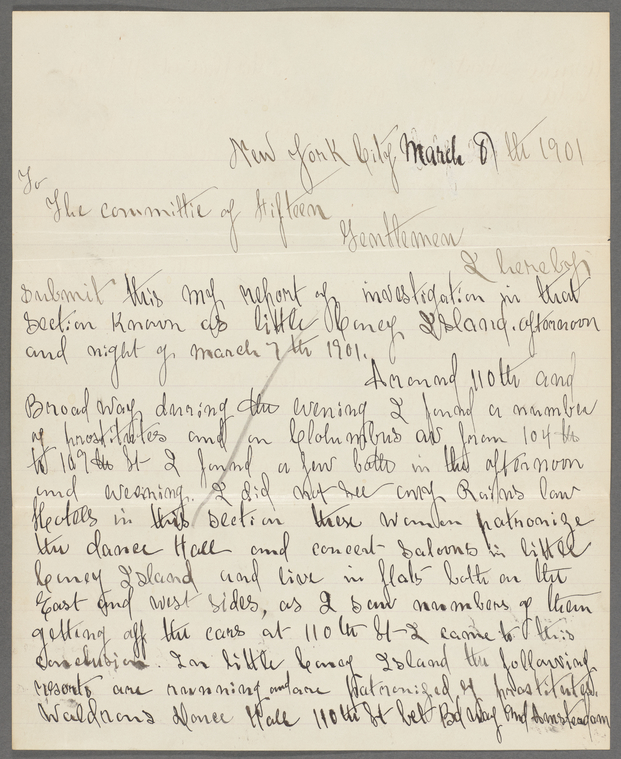 New York City March 8th 1901
To
The committie of fifteen
Gentlemen
I hereby
submit this my report of investigation in that
section known as little Coney Island. afternoon
and night of march 7th 1901.
Around 110th and
Broadway, during the evening I found a number
of prostitutes and on Columbus av from 104th
to 109th St I found a few both in the afternoon
and evening. I did not see any Rains law
Hotels in this section these women patronize
the dance Hall and concert saloons in little
Coney Island and live in flats both on the
East and west sides, as I saw numbers of them
getting off the cars at 110th St I came to this
conclusion. In little Coney Island the following
resorts are running and are patronized by prostitutes.
Waldrons Dance Hall 110th St bet Bdway and Amsterdam